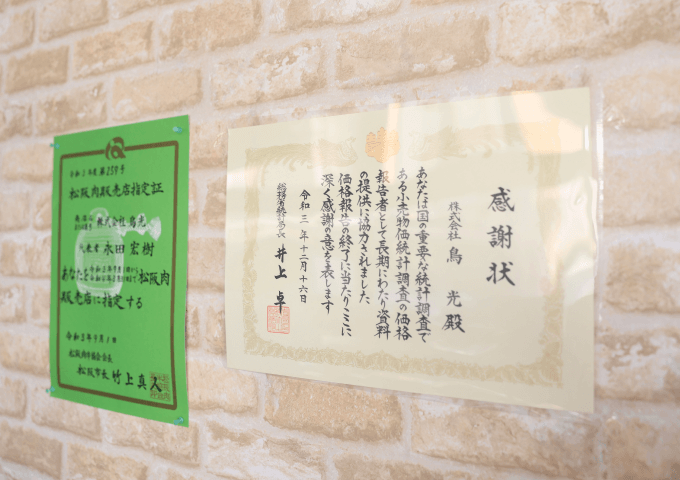 令和3年度第259号
松阪肉販売店指定証
株式会社鳥光
代表者 永田宏樹
あなたを
松阪肉
販売店に指定する
令和3年9月1日
松阪肉牛協会会長
松阪市長 竹上真人
感謝状
株式会社 鳥光殿
あなたは国の重要な統計調査で
ある小売物価統計調査の価格
報告者として長期にわたり資料
の提供に協力されました
価格報告の終了に当たりここに
深く感謝の意を表します
令和三年十二月十六日
総務省統計局長 井上卓